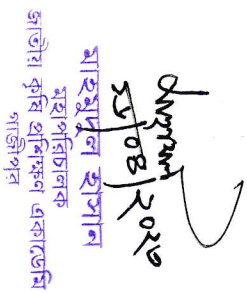 মাহমুদুল হাসান
মহাপরিচালক
জাতীয় কৃষি প্রশিক্ষণ একাডেমি
গাজীপুর